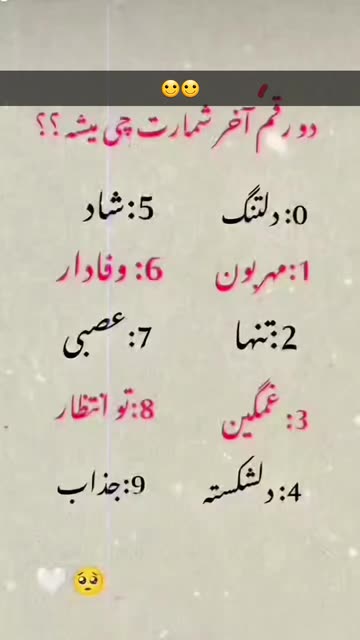 🙂🙂
دو رقم آخر شمارت چی میشه؟؟
0:دلتنگ 5:شاد
1:مهربون 6:وفادار
2:تنها 7:عصبی
3:غمگین 8:تو انتظار
4:دلشکسته 9:جذاب
🤍🥺